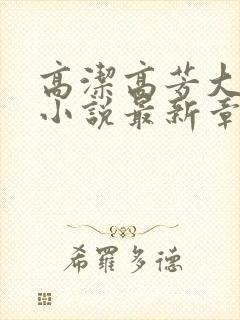 高潔高芳大
小說最新章
希羅多德